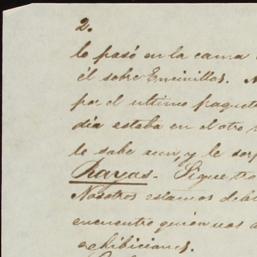 2.
le pasó en la cama
él sobre Encinillas.
por el ultimo paquete
dia estaba en el otro
le sabe aun, y le sor
Rayas. Sigue tra
Nosotros estamos debi
encuentro quien nos
exhibiciones.